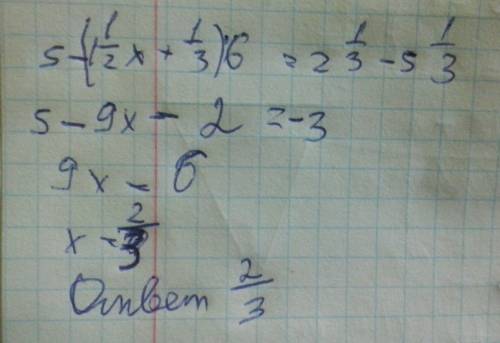 5 - (1 1/2 x + 1/3) · 6 = 2 1/3 - 5 1/3
5 - 9x - 2 = -3
9x = 6
x = 2/3
Ответ 2/3